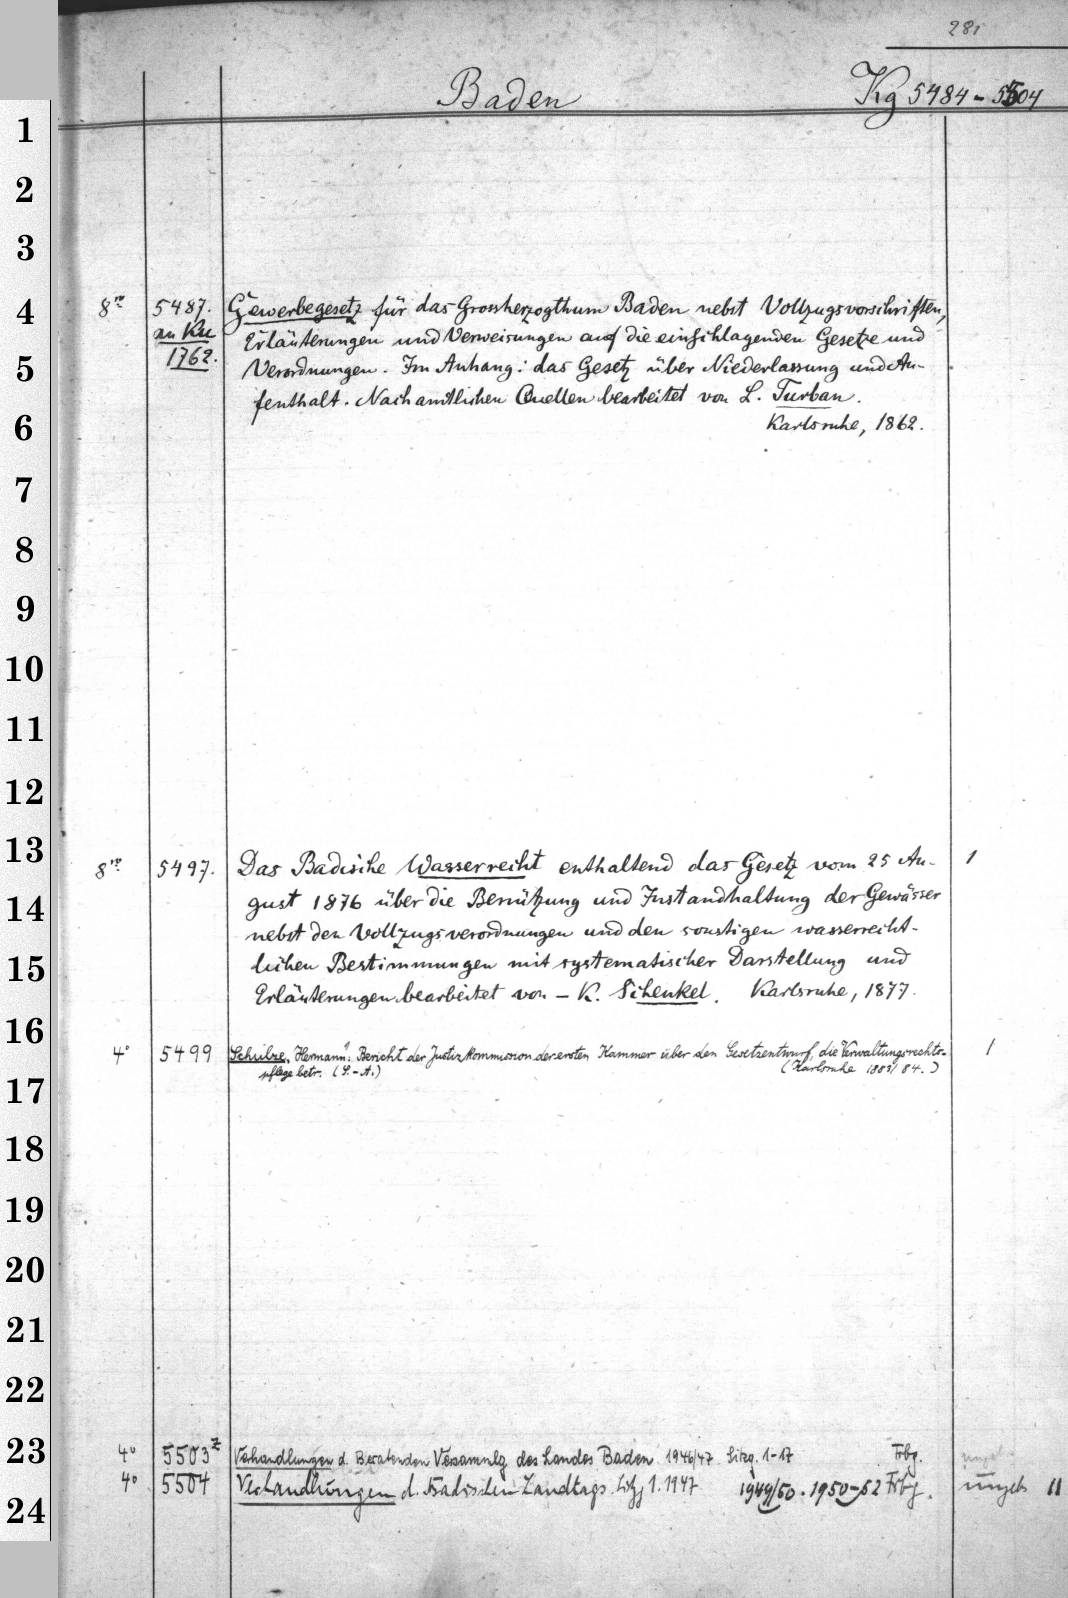 281
Baden Kg 5484 - 5504
8ro 5487. Gewerbegesetz für das Grossherzogthum Baden nebst Vollzugsvorschriften,
an Ku Erläuterungen und Verweisungen auf die einschlagenden Gesetze und
1762. Verordnungen. Im Anhang: das Gesetz über Niederlassung und Au-
fenthalt. Nach amtlichen Quellen bearbeitet von L. Turban.
Karlsruhe, 1862.
8ro 5497. Das Badische Wasserrecht enthaltend das Gesetz vom 25 Au- 1
gust 1876 über die Benützung und Instandhaltung der Gewässer
nebst den Vollzugsverordnungen und den sonstigen wasserrecht-
lichen Bestimmungen mit systematischer Darstellung und
Erläuterungen bearbeitet von – K. Schenkel. Karlsruhe, 1877.
4° 5499 Schulze, Hermann: Bericht der Justizkommission der ersten Kammer über den Gesetzentwurf, die Verwaltungsrechts- 1
pflege betr. (S.-A.) (Karlsruhe 1883/84.)
4° 5503 z Verhandlungen d. Beratenden Versammlg des Landes Baden 1946/47 Sitzg. 1-17 Frbg.
4° 5504 Verhandlungen d. Badischen Landtags. Sitzg 1. 1947 1949/50. 1950-52 Frbg. ungeb 11
1
2
3
4
5
6
7
8
9
10
11
12
13
14
15
16
17
18
19
20
21
22
23
24